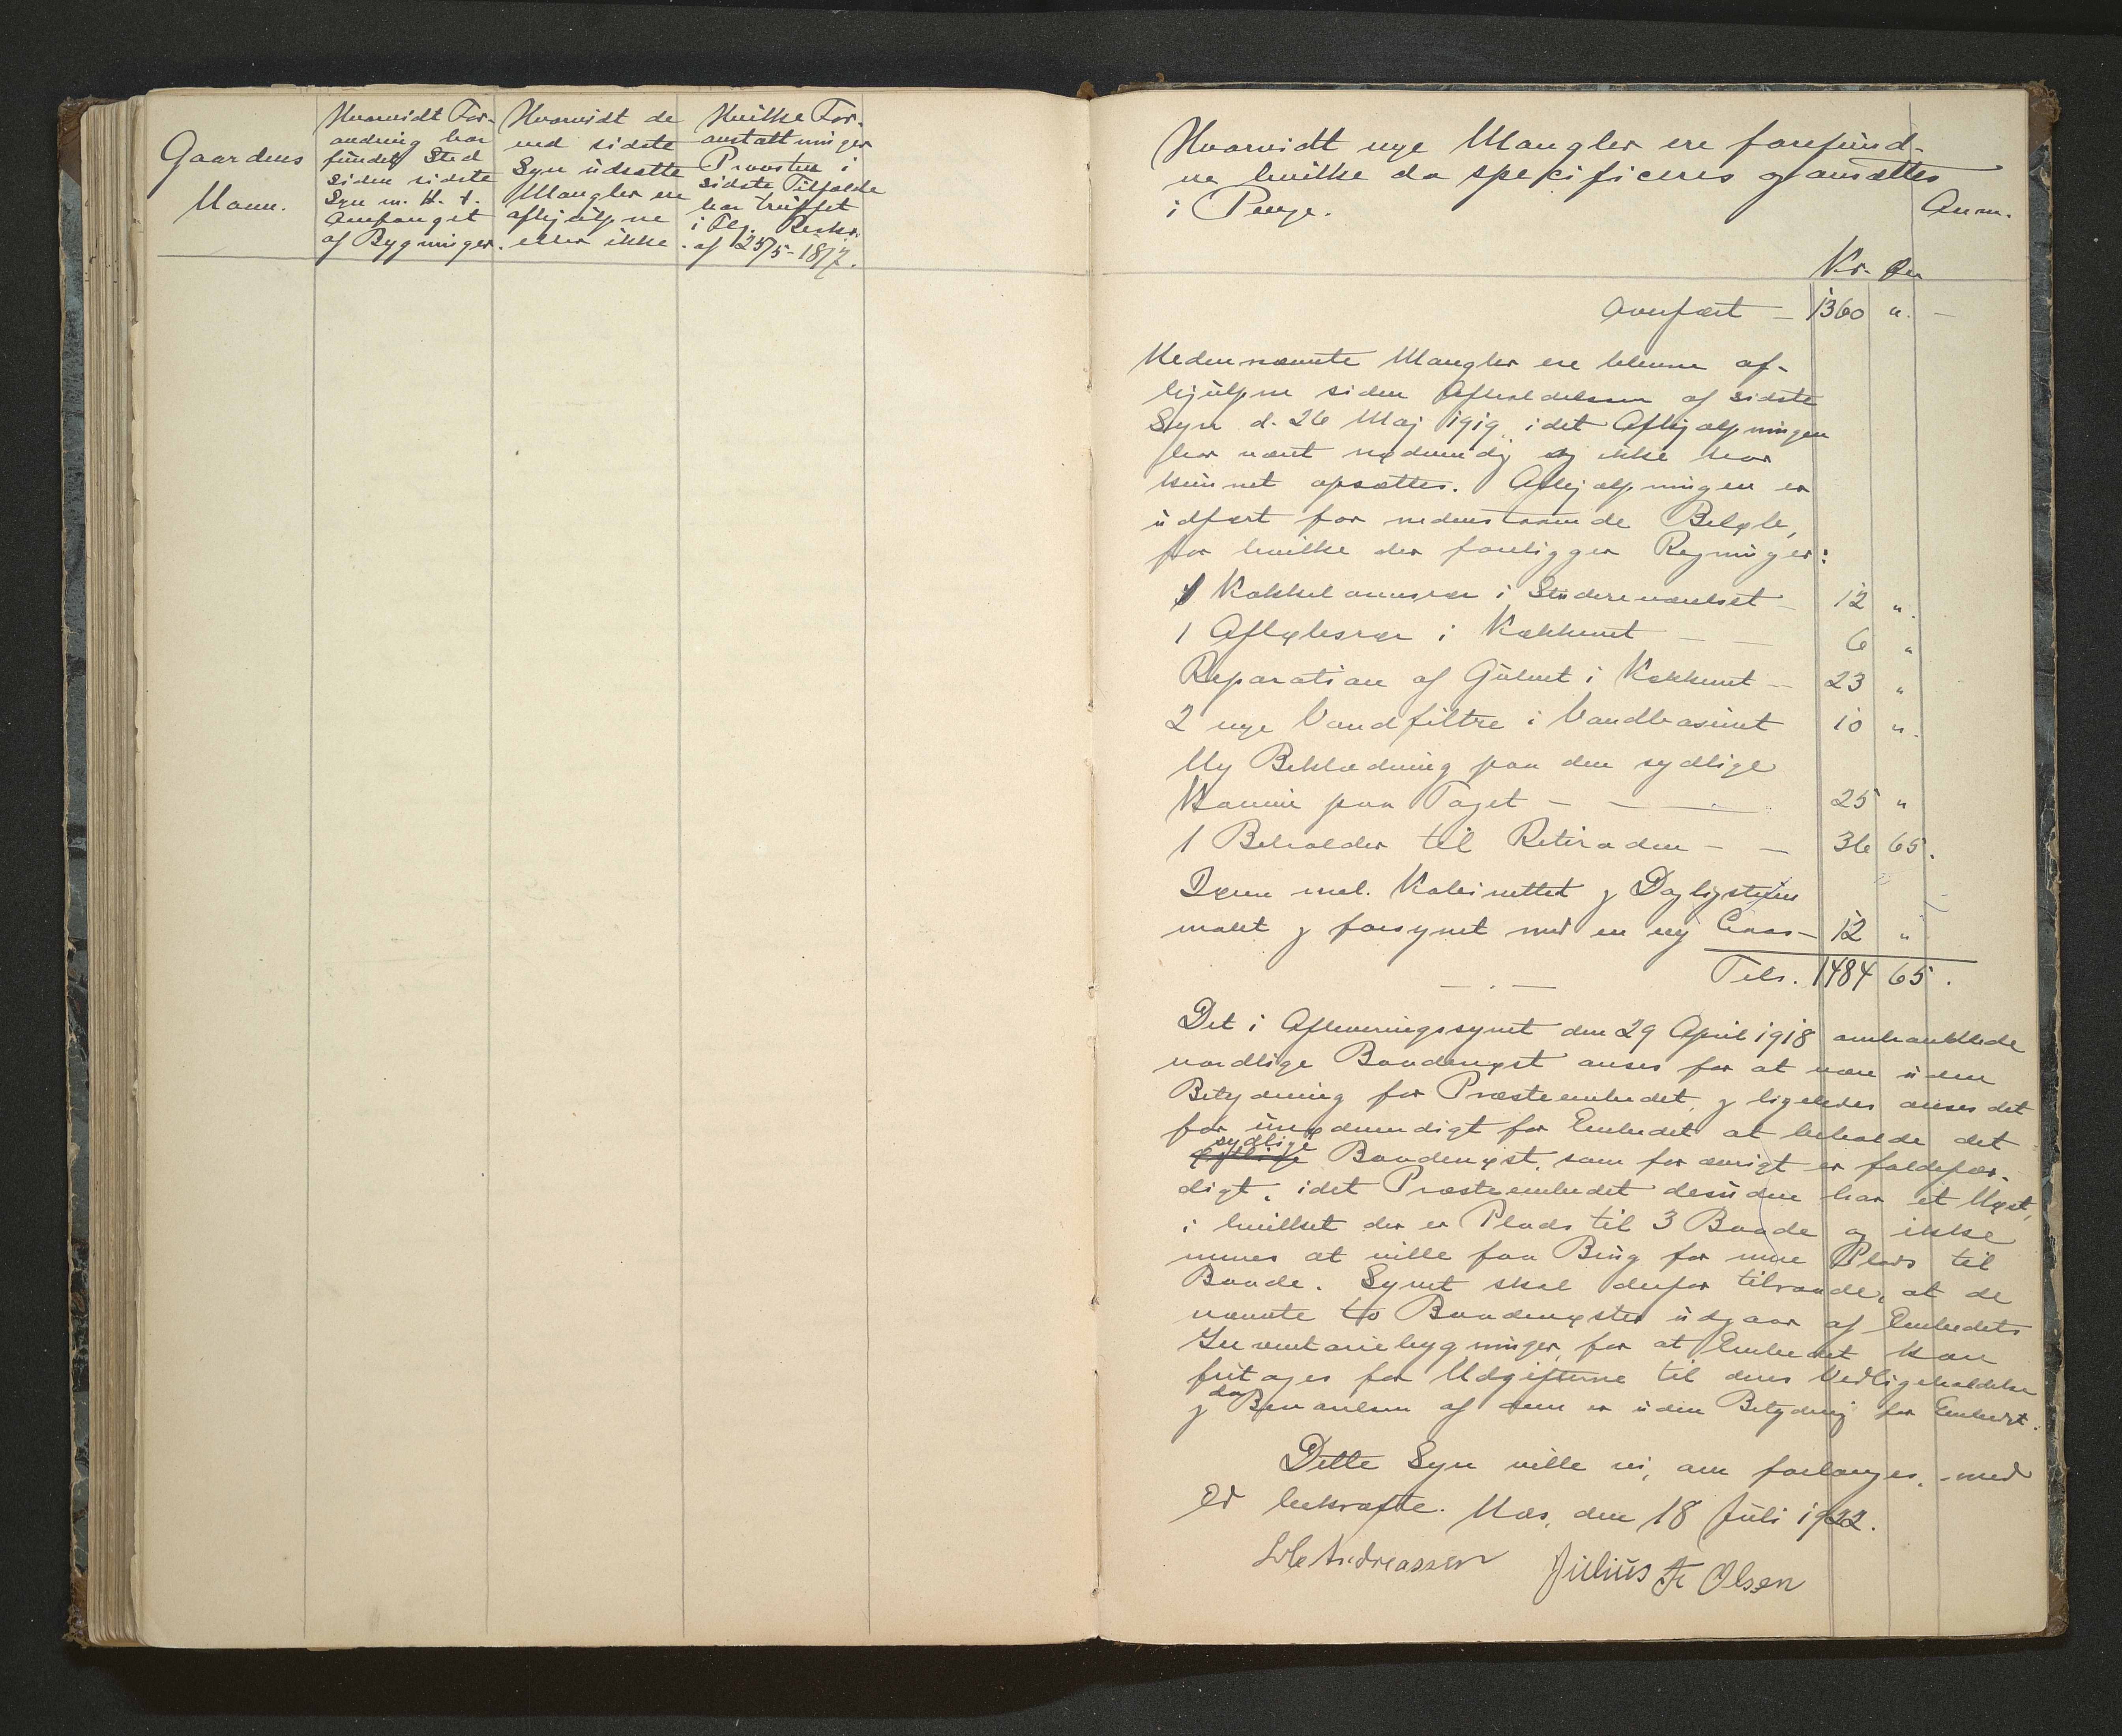 Gaardens
Navn.
Hvorvidt For-
andring har
fundet Sted
siden sidste
Syn m. H. t.
Omfanget
af Bygninger.
Hvorvidt de
ved sidste
Syn udsatte
Mangler ere
afhjulpne
eller ikke.
Hvilke For-
anstaltninger
Provsten i
sidste Tilfælde
har truffet
i Flg. Reskr.
af 25/5-1877.
Hvorvidt nye Mangler ere forefund-
ne hvilke da specificeres og ansættes
i Penge.
Anm.
Kr. Øre
Overført — 1360 " —
Nedennævnte Mangler ere blevne af-
hjulpne siden Afholdelsen af sidste
Syn d. 26 Maj 1919, idet Afhjælpningen
har været nødvendig og ikke har
kunnet opsættes. Afhjælpningen er
udført for nedenstaaende Beløb,
for hvilke der foreligger Regninger:
1 Kakkelovnsrør i Studereværelset — 12 "
1 Afløbsrør i Køkkenet — — 6 "
Reparation af Gulvet i Køkkenet — 23 "
2 nye Vandfiltre i Vandbasinet 10 "
Ny Beklædning paa den sydlige
Kamin paa Taget — — — 25 "
1 Beholder til Retiraden — — 36 65.
Døren mel. Kabinettet og Dagligstuen
malet og forsynet med en ny Laas — 12 "
Tils. 1484 65.
— . —
Det i Afleveringssynet den 29 April 1918 omhandlede
nordlige Baadenøst anses for at være uden
Betydning for Præsteembedet, og ligeledes anses det
for unødvendigt for Embedet at beholde det
sydlige
Baadenøst, som for øvrigt er faldefær-
digt, idet Præsteembedet desuden har et Nøst,
i hvilket der er Plads til 3 Baade og ikke
menes at ville faa Brug for mere Plads til
Baade. Synet skal derfor tilraade, at de
nævnte to Baadenøster udgaar af Embedets
Inventariebygninger, for at Embedet kan
fritages for Udgifterne til deres Vedligeholdelse
da
og Bevarelsen af dem er uden Betydning for Embedet.
Dette Syn ville vi, om forlanges, med
Ed bekræfte. Næs, den 18 Juli 1922.
Andreassen Julius Fr Olsen